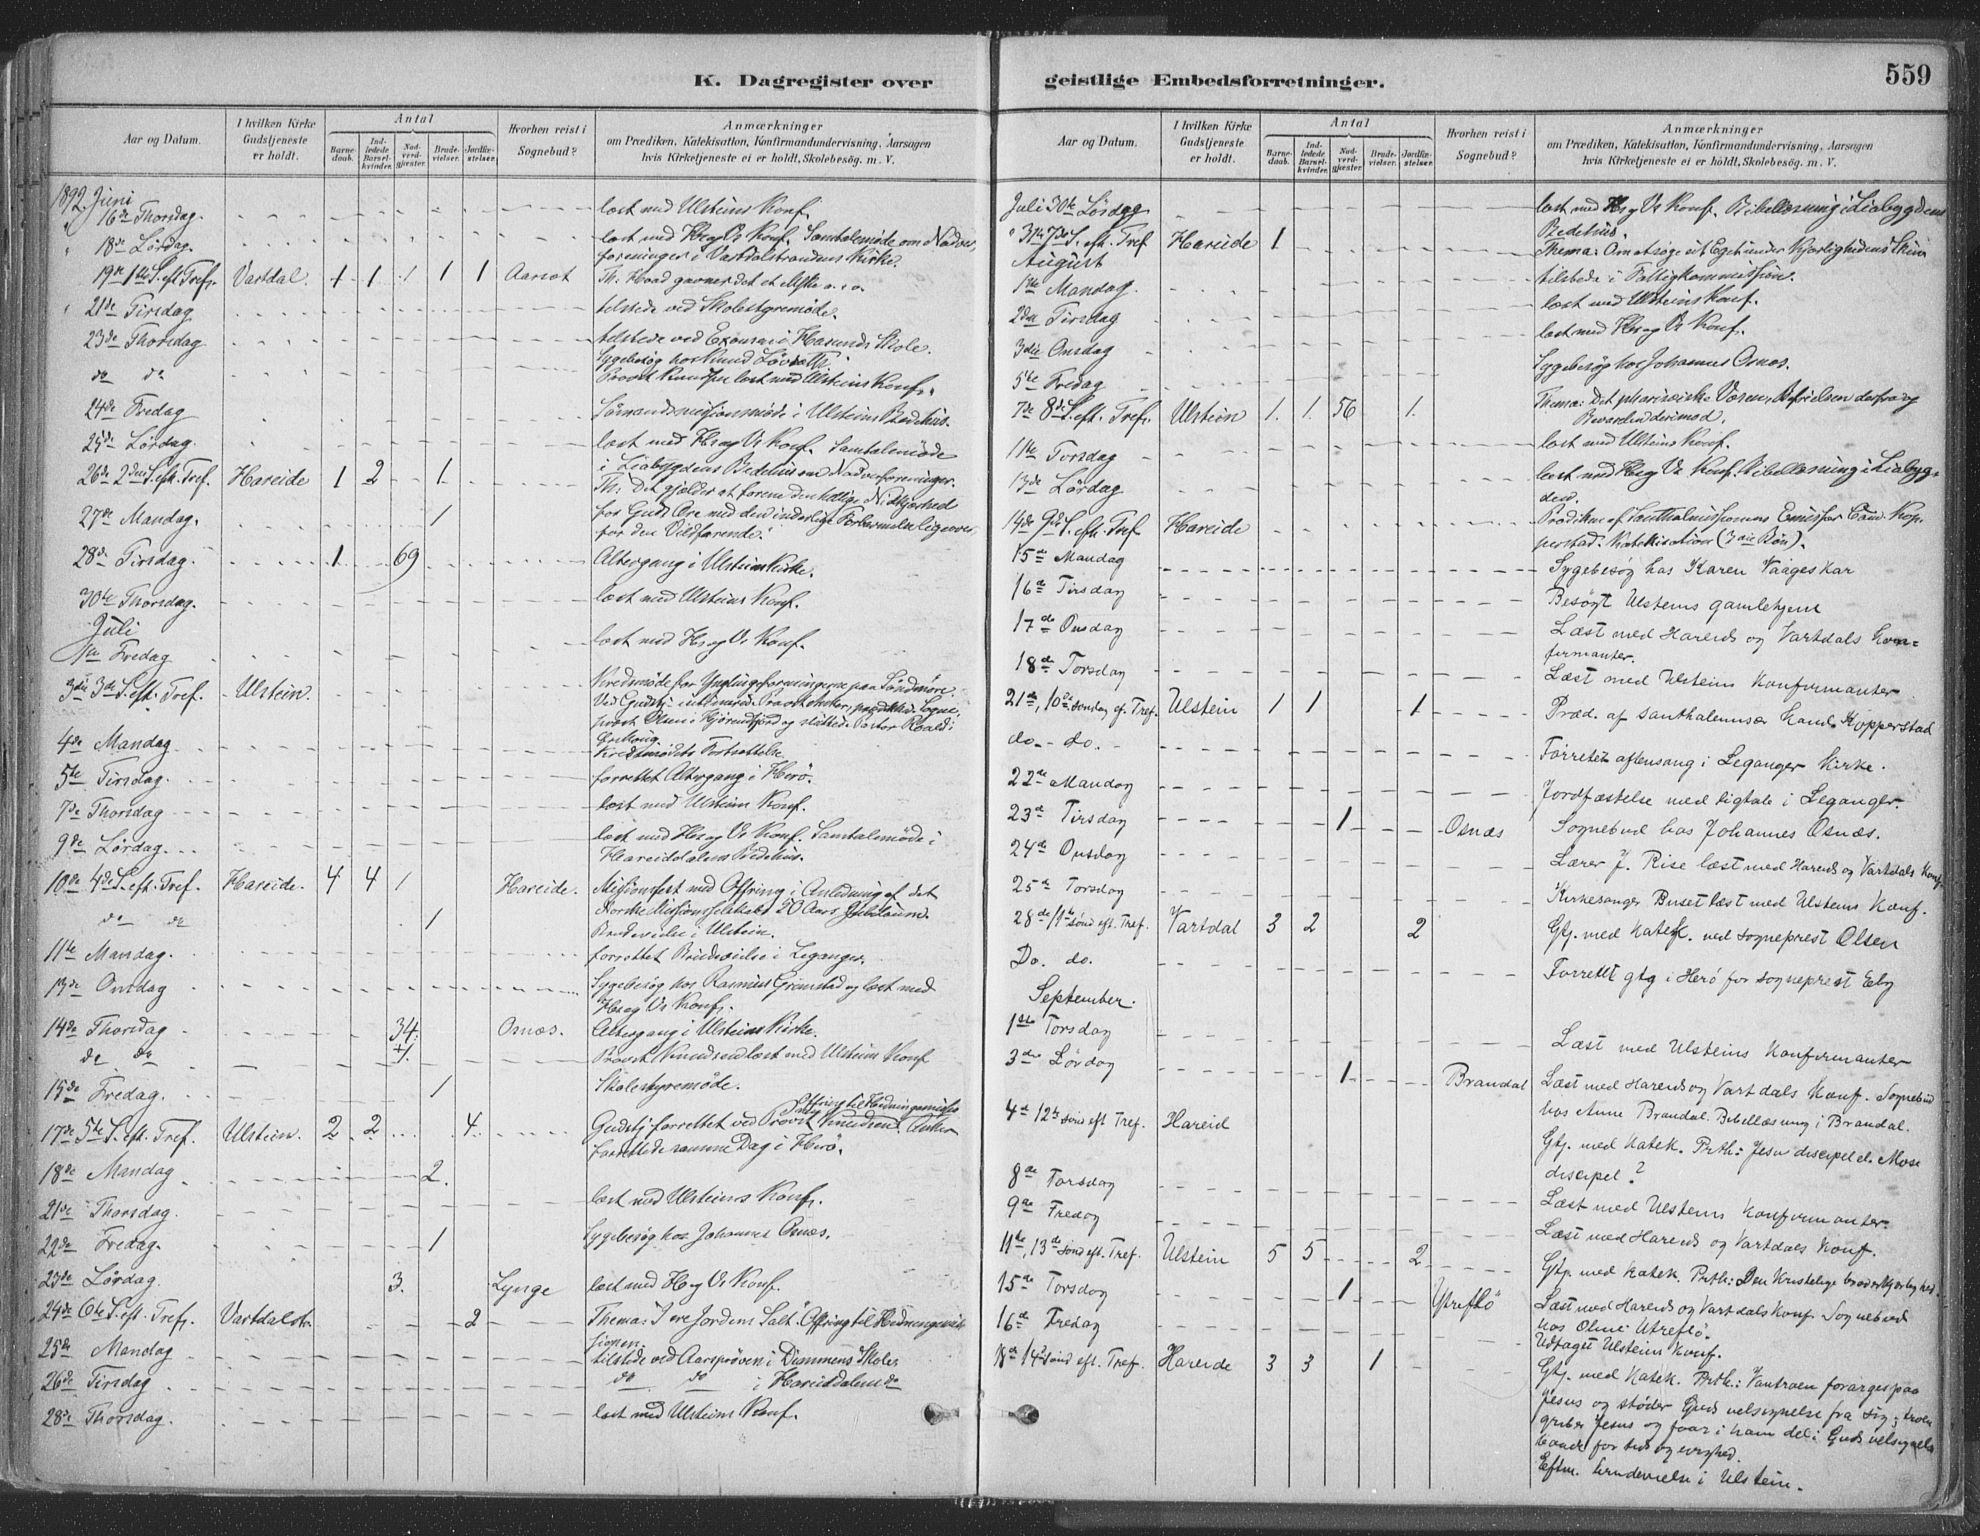 K. Dagregister over
Aar og Datum. I hvilken Kirke Gudstjeneste er holdt. Antal Barnedaab. Indledede Barselkvinder. Nadverdgjester. Brudevielser. Jordfæstelser. Hvorhen reist i Sognebud? Anmærkninger om Prædiken, Katekisation, Konfirmandundervisning, Aarsagen hvis Kirketjeneste ei er holdt, Skolebesøg. m. V.
1892 Juni
16de Thorsdag. læst med Ulsteins Konf.
18de Lørdag. læst med H. og Vs Konf. Samtalemøde om Nadver-
foreninger i Vartdalstrandens Kirke.
19de 1ste S. eft Tref. Vartdal. 1 1 1 1 1 Aarsæt Th. Hvad gavner det et Mske o.s.v.
21de Tirsdag tilstede ved Skolestyremøde.
23de Thorsdag tilstede ved Examen i Hasunds Skole.
do do Sygebesøg hos Knud
Provst Knudsen læst med Ulsteins Konf.
24de Fredag Sømandsmissionsmøde i Ulsteins Bedehus.
25de Lørdag. læst med H. og Vs Konf. Samtalemøde
i Liabygdens Bedehus om Nadverforeninger.
26de 2den S. eft. Tref. Hareide 1 2 1 Th: Det gjælder at forene den hellige Nidkjærhed
27de Mandag. 1 for Guds Ære med den inderlige Forbarmelse ligeover
for den Vildfarende.
28de Tirsdag. 1 69 Altergang i Ulstein Kirke.
30te Thorsdag. læst med Ulsteins Konf.
Juli
1ste Fredag læst med H. og Vs Konf.
3die 3die S. eft. Tref. Ulstein. Kredsmøde for Ynglingeforeningerne paa Søndmøre.
Ved Gudstj. intimerede Provst Anker, prædiked Sogne-
prest Olsen i Hjørendfjord og sluttede Pastor Roald i
4de Mandag Kredsmødets Fortsættelse
5te Tirsdag. forrettet Altergang i Herø.
7de Thorsdag læst med Ulsteins Konf.
9de Lørdag. læst med H. og Vs Konf. Samtalemøde i
Hareiddalens Bedehus.
10de 4de S. eft. Tref. Hareide. 4 4 1 Hareide. Missionsfest med Offring i Anledning af det
do do 1 Norske Missionsselskabs 50 Aars Jubilæum.
Brudevielse i Ulstein.
11te Mandag. forrettet Brudevielse i Leganger.
13de Onsdag Sygebesøg hos Rasmus Grimstad og læst med
H. og Vs Konf.
14de Thorsdag 34. Osnæs. Altergang i Ulsteins Kirke.
do do +1. Provst Knudsen læst med Ulsteins Konf
15de Fredag. 1 Skolestyremøde.
Offring til Hedningemiss.
17de 5te S. eft. Tref. Ulstein. 2 2 4. Gudstj. forrettet ved Provst Knudsen. Anker
forrettede samme Dag i Herø.
18de Mandag 2.
21de Thorsdag. læst med Ulsteins Konf.
22de Fredag. 1 Sygebesøg hos Johannes Osnæs.
23de Lørdag. 3. Lynge læst med H. og Vs Konf.
24de 6te S. eft. Tref. Vartdalstr. 2 Thema: "I ere Jordens Salt". Offring til Hedningemis-
sionen.
25de Mandag tilstede ved Aarsprøven i Dimmens Skole.
26de Tirsdag do do i Hareiddalens do
28de Thorsdag. læst med Ulsteins Konf.
geistlige Embedsforretninger. 559
Aar og Datum. I hvilken Kirke Gudstjeneste er holdt. Antal Barnedaab. Indledede Barselkvinder. Nadverdgjester. Brudevielser. Jordfæstelser. Hvorhen reist i Sognebud? Anmærkninger om Prædiken, Katekisation, Konfirmandundervisning, Aarsagen hvis Kirketjeneste ei er holdt, Skolebesøg. m. V.
Juli 30te Lørdag læst med H. og Vs Konf. Bibellæsning i Liabygdens
Bedehus.
31te 7de S. eft. Tref Hareide 1 Thema: Om at søge sit Eget under Kjærlighedens Skin
August
1ste Mandag. tilstede i Fattigkommission.
2den Tirsdag læst med Ulsteins Konf.
3die Onsdag læst med H. og Vs Konf.
5te Fredag Sygebesøg hos Johannes Osnæs.
7de 8de S. eft. Tref. Ulstein 1. 1. 56 1. Thema: Det phariseiske Væsen, Befrielsen derfra og
Bevarelsen derimod.
11te Torsdag læst med Ulsteins Konf.
13de Lørdag læst med H. og Vs Konf. Bibellæsning i Liabyg-
den.
14de 9de S. eft. Tref Hareide Prædiken af Santhalmissionens Emissær Cand. Kop-
perstad. Katekisation (3die Bøn).
15de Mandag Sygebesøg hos Karen Vaageskar
16de Tirsdag Besøgt Ulsteins gamlehjem
17de Onsdag Læst med Hareids og Vartdals Kon-
firmanter.
18de Torsdag Læst med Ulsteins Konfirmanter
21de, 10de søndag ef. Tref. Ulstein 1 1 1 Præd. af santhalemissær Kand. Kopperstad
do. - do. Forrettet aftensang i Leganger Kirke.
22de Mandag Jordfæstelse med ligtale i Leganger
23de Tirsdag 1 Osnæs Sognebud hos Johannes Osnæs.
24de Onsdag Lærer J. Rise læst med Hareids og Vartdals Konf.
25de Torsdag Kirkesanger Buset læst med Ulsteins Konf.
28de 11te sønd eft. Tref. Vartdal 3 2 2 Gtj. med Katek. ved sogneprest Olsen
Do. do. Forrettet gtg i Herø for sogneprest Eby
September.
1ste Torsdag Læst med Ulsteins Konfirmanter
3die Lørdag 1 Brandal Læst med Hareids og Vartdals Konf. Sognebud
hos Anne Brandal. Bibellæsning i Brandal.
4de 12te sønd eft Tref. Hareid Gtj. med Katek. Prth: Jesu discipel el. Mose
discipel?
8de Torsdag Læst med Ulsteins Konfirmanter
9de Fredag Læst med Hareids og Vartdals Konf.
11te, 13de sønd eft. Tref. Ulstein 5 5 2 Gtj. med Katek. Prth: Den Kristelige broderkjærlighed.
15de Torsdag 1 Ytreflø Læst med Hareids og Vartdals Konf. Sognebud
hos Oline Ytreflø.
16de Fredag Udtaget Ulsteins Konf.
18de 14de sønd eft. Tref. Hareide 3 3 1 Gtj. med Katek. Prth.: Vantroen forarges paa
Jesus og støder Guds velsignelse fra sig; troen
griber Jesus og faar i ham del i Guds velsignelse
baade for tid og evighed.
Eftm. brudevielse i Ulstein.